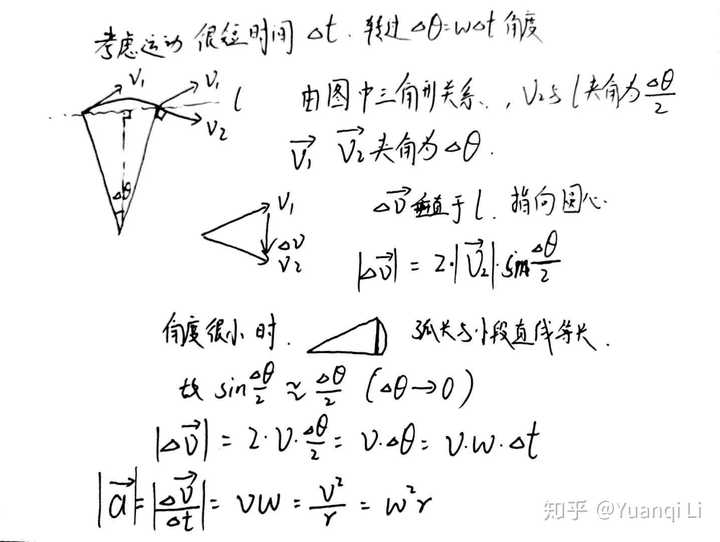 考虑运动很短时间 Δt. 转过 Δθ=wΔt 角度
V₁ V₁ l
V₂
Δθ
由图中三角形关系, V₂与 l 夹角为 Δθ/2
V₁⃗ V₂⃗ 夹角为 Δθ.
V₁
ΔV
V₂
Δv⃗ 垂直于 l. 指向圆心
|Δv⃗| = 2·|V₂⃗|·sin Δθ/2
角度很小时. 弧长与小段直线等长.
故 sin Δθ/2 ≈ Δθ/2 (Δθ→0)
|Δv⃗| = 2·v·Δθ/2 = v·Δθ = v·w·Δt
|a⃗| = |Δv⃗/Δt| = vw = v²/r = w²r
知乎 @Yuanqi Li